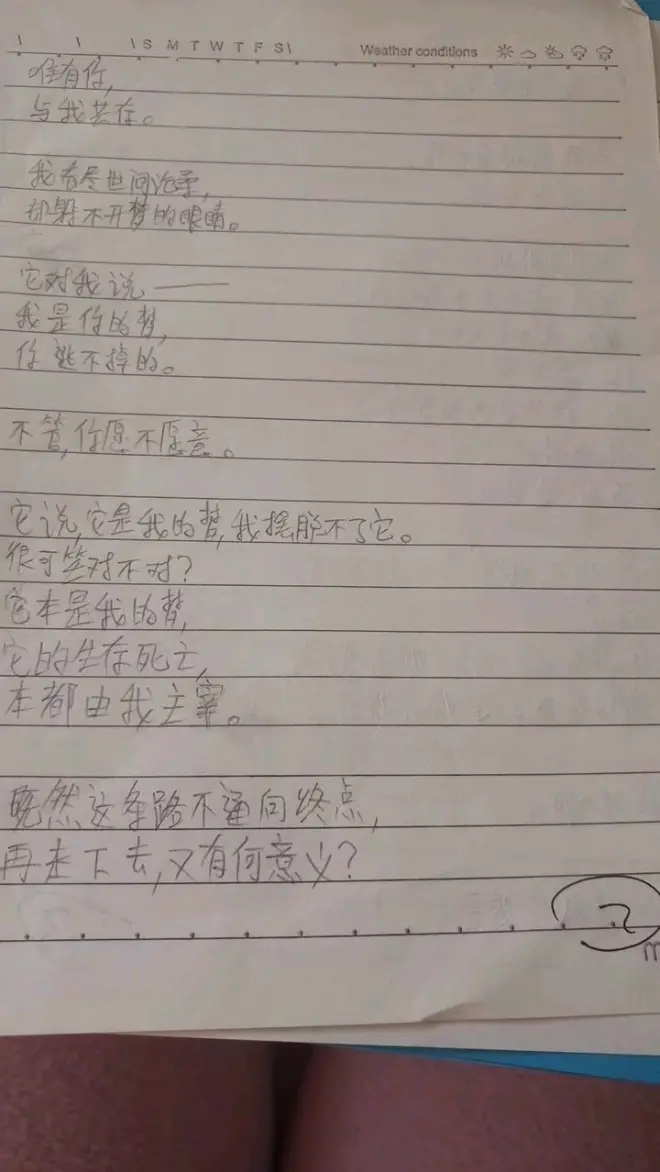 \ \ \ S M T W T F S \ Weather conditions
唯有你,
与我共存。
我看尽世间沧桑,
却 不开梦的眼睛。
它对我说——
我是你的梦,
你逃不掉的。
不管,你愿不愿意。
它说,它是我的梦,我摆脱不了它。
很可笑对不对?
它本是我的梦,
它的生存死亡,
本都由我主宰。
既然这条路不通向终点,
再走下去,又有何意义?
2